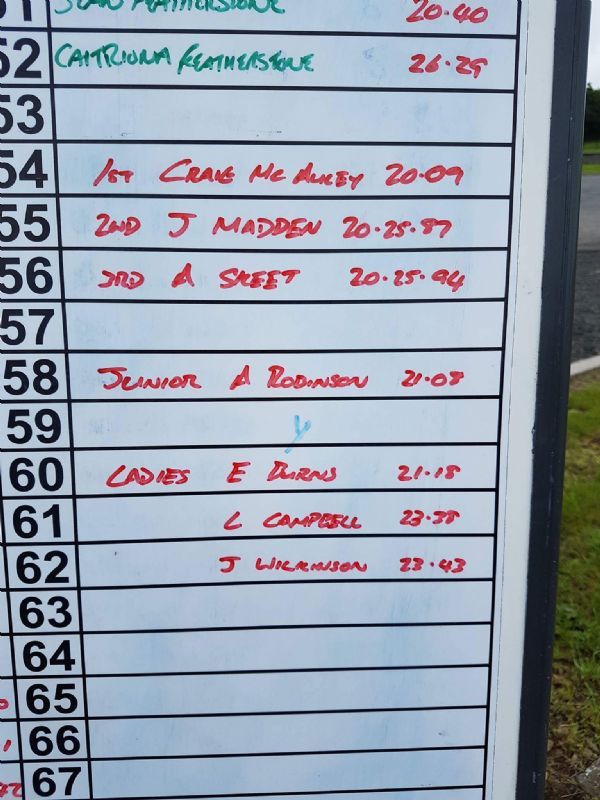 FEATHERSTONE 20.40
52 CAITRIONA FEATHERSTONE 26.29
53
54 1ST CRAIG MC AULEY 20.09
55 2ND J MADDEN 20.25.87
56 3RD A SKEET 20.25.94
57
58 JUNIOR A ROBINSON 21.08
59 y
60 LADIES E BURNS 21.18
61 L CAMPBELL 23.38
62 J WILKINSON 23.43
63
64
65
66
67